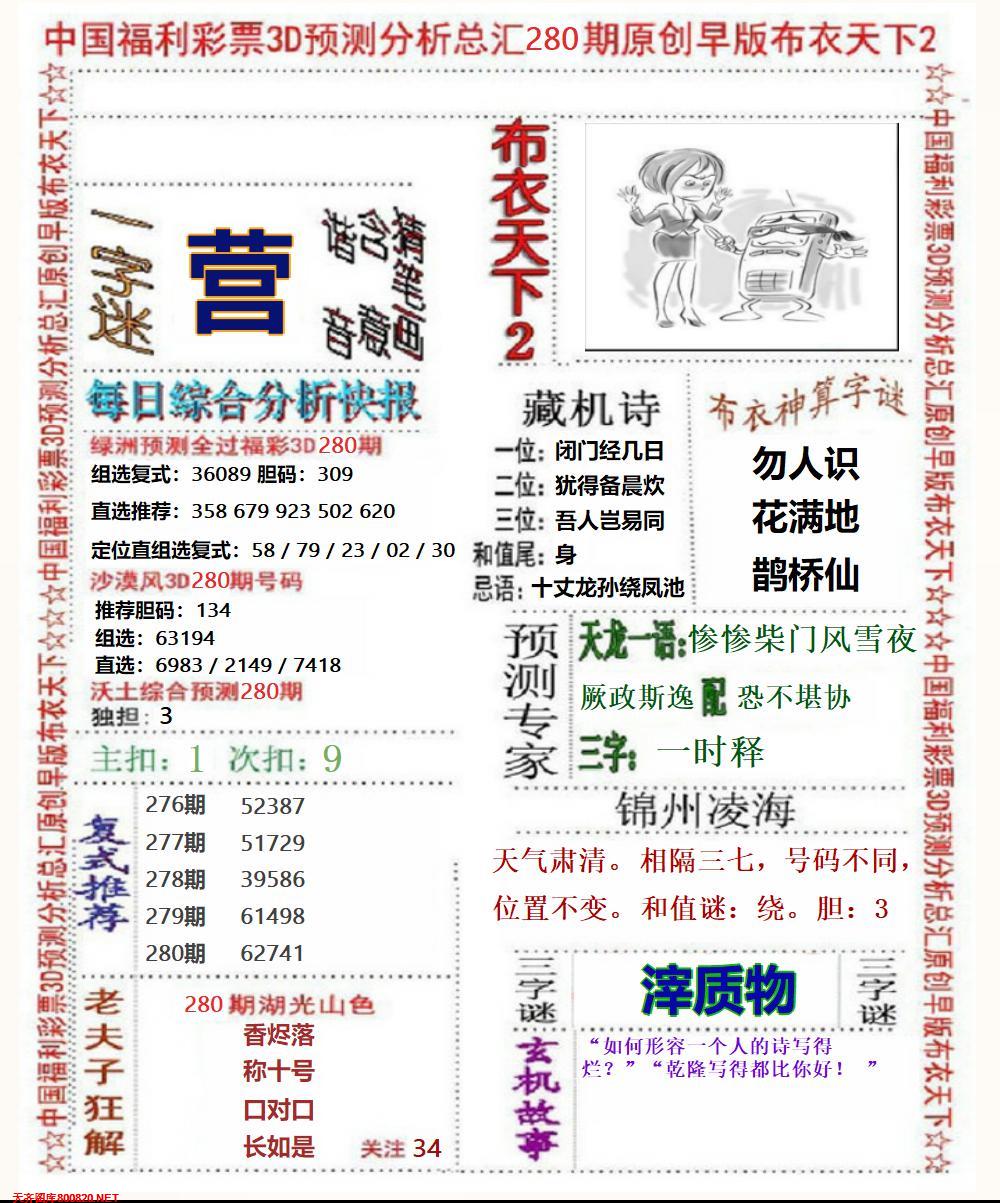 中国福利彩票3D预测分析总汇280期原创早版布衣天下2
☆☆中国福利彩票3D预测分析总汇原创早版布衣天下☆☆☆中国福利彩票3D预测分析总汇原创早版布衣天下☆☆
一字迷
营
猜笔画
含意
谐音
每日综合分析快报
绿洲预测全过福彩3D280期
组选复式：36089 胆码：309
直选推荐：358 679 923 502 620
定位直组选复式：58 / 79 / 23 / 02 / 30
沙漠风3D280期号码
推荐胆码：134
组选：63194
直选：6983 / 2149 / 7418
沃土综合预测280期
独担：3
主扣：1 次扣：9
复式推荐
276期 52387
277期 51729
278期 39586
279期 61498
280期 62741
老夫子狂解
280期湖光山色
香烬落
称十号
口对口
长如是 关注 34
布衣天下2
藏机诗
一位：闭门经几日
二位：犹得备晨炊
三位：吾人岂易同
和值尾：身
忌语：十丈龙孙绕凤池
布衣神算字谜
勿人识
花满地
鹊桥仙
预测专家
天龙一语：惨惨柴门风雪夜
厥政斯逸 配 恐不堪协
三字：一时释
锦州凌海
天气肃清。相隔三七，号码不同，
位置不变。和值谜：绕。胆：3
三字谜
滓质物
三字谜
玄机故事
“如何形容一个人的诗写得
烂？”“乾隆写得都比你好！ ”
☆☆中国福利彩票3D预测分析总汇原创早版布衣天下☆☆☆中国福利彩票3D预测分析总汇原创早版布衣天下☆☆
天齐图库800820.NET